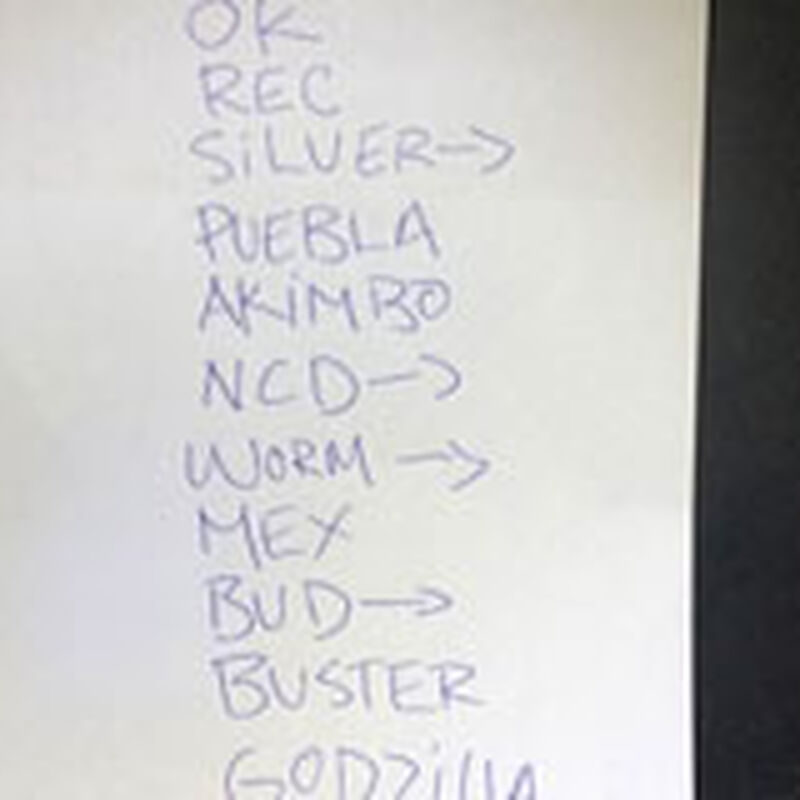 OK
REC
SiLVER→
PUEBLA
AKiMBO
NCD→
WORM →
MEX
BUD→
BUSTER
GODZillA